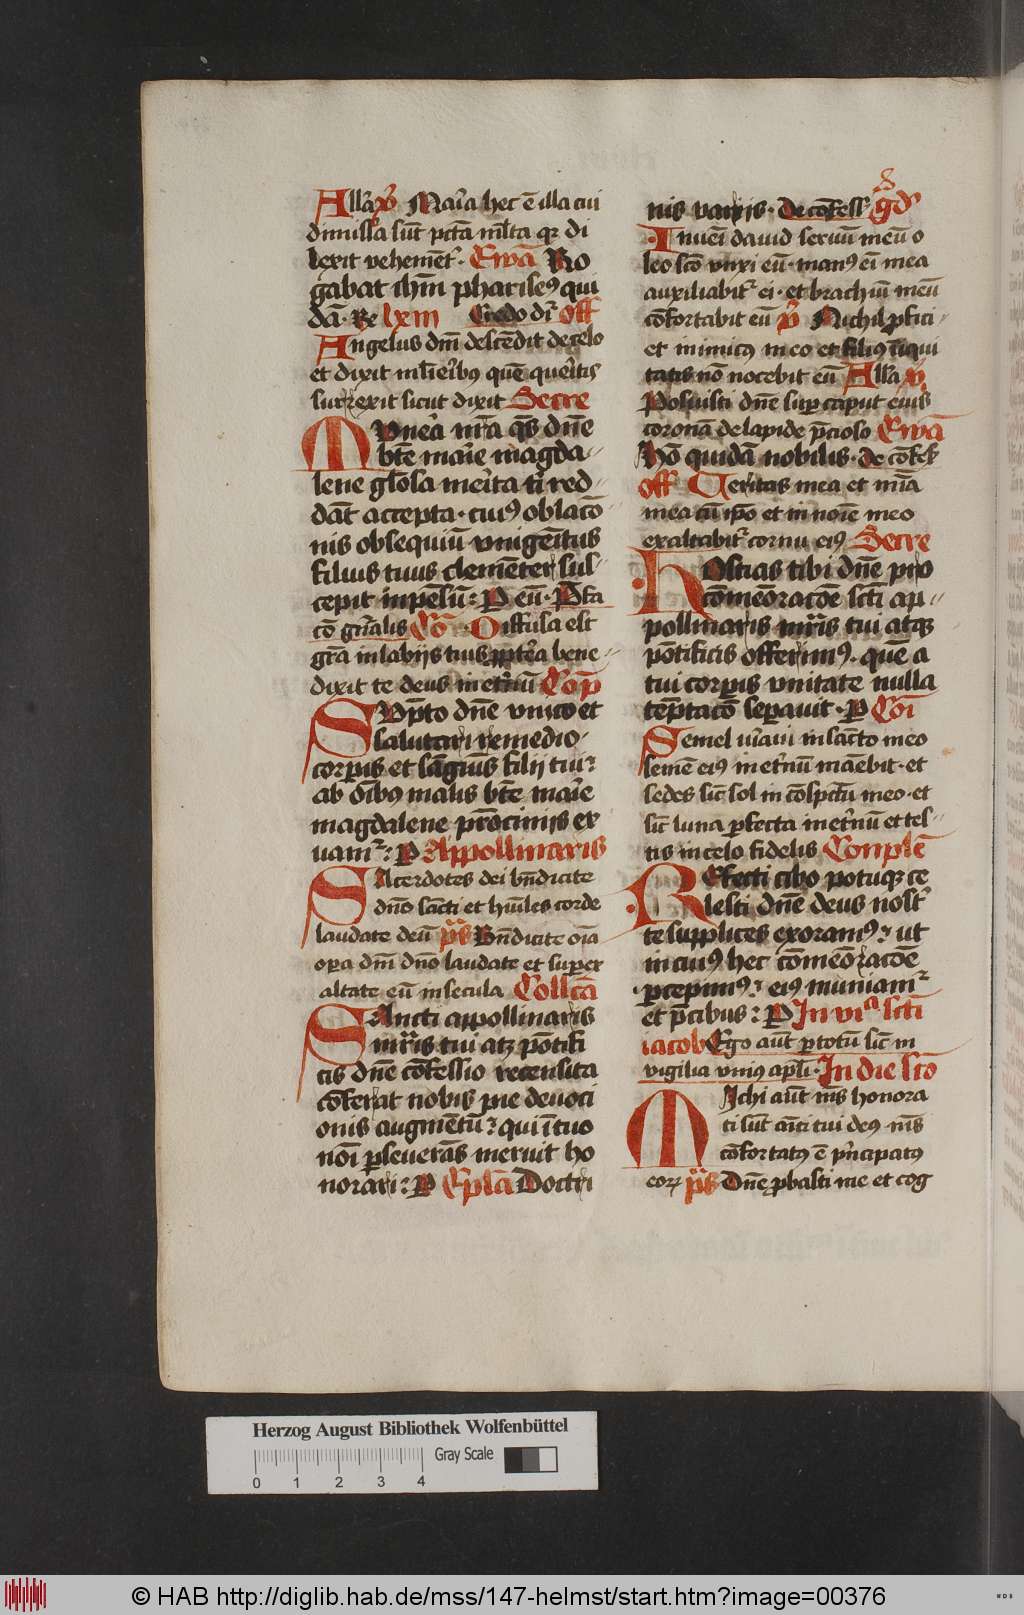 All'a v̕ Maria hec ē illa cui
dimissa sūt pctā ml̄ta qr di
lexit vehemēt᷑. Ewā Ro
gabat ihm̄ phariseꝰ qui
dā. Re lxiii Credo dr̄ off
Angelus dn̄i descēdit de celo
et dixit ml̄ieribꝰ quē queritis
surrexit sicut dixit Secre
Mvnera nr̄a qs dn̄e
bt̄e marie magda-
lene gl̄osa merita tͥ red-
dāt accepta. cuiꝰ oblacō-
nis obsequiū vnigēitus
filius tuus clemēter sus-
cepit inpēsū: P eū. Pfa
cō gn̄alis Cō Diffusa est
grā in labijs tuis ꝓpterea bene-
dixit te deus in eternū Cop̄
Svmpto dn̄e vnico et
salutari remedio.
corporis et sāgius filij tui:
ab oībꝰ malis bt̄e marie
magdalene prōcinijs er
uam᷑: P Appollinaris
Sacerdotes dei bn̄dicite
dn̄o sācti et hūiles corde
laudate deū ps Bn̄dicite oīa
opera dn̄i dn̄o laudate et super
altate eū in secula Collcā
Sancti appollinaris
mr̄is tui atꝫ pōtifi
cis dn̄e cōfessio recensita
cōferat nobis pie devoci
onis augmētū: qui ī tuo
noīe ꝑseverās meruit ho
norari: P Eplā Doctri
nis varijs. de cōfess gd'
Inueni dauid seruū meū o
leo sc̄o vnxi eū. manꝰ eī mea
auxiliabit᷑ ei. et brachiū meū
cōfortabit eū v̕ Nichil ꝓfici-
et inimicꝰ in eo et filiꝰ īiqui
tatis nō nocebit eū All'a v̕
Posuisti dn̄e super caput eius
coronā de lapide p̄cioso Ewā
Hō quidā nobilis. de cōfess
off Veritas mea et mīa
mea cū ip̄o et in noīe meo
exaltabit᷑ cornu eiꝰ Secre
Hostias tibi dn̄e pro
cōmeōracōe scti ap-
pollinaris mr̄is tui atqꝫ
pōtificis offerimꝰ. quē a
tui corporis vnitate nulla
tēptacō separauit. P Cōi
Semel iuraui in sancto meo
semē eiꝰ in eternū manebit. et
sedes sic̄ sol in cōspc̄tu meo. et
sic̄ luna ꝑfecta in eternū et tes-
tis in celo fidelis Complē
Refecti cibo potuqꝫ ce
lesti dn̄e deus nost᷑
te supplices exoramꝰ: ut
in cuiꝰ hec cōmeōracōe
ꝑcepimꝰ: eiꝰ muniam᷑
et p̄cibus: P In viᵃ scti
iacob Ego aūt ꝑ totū sic̄ in
vigilia vniꝰ apl̄i. In die sc̄o
Michi aūt nīs honora
ti sūt amici tui deꝰ. nīs
cōfortatꝰ ē pͥncipatꝰ
eorꝝ ps Dn̄e ꝓbasti me et cog
Herzog August Bibliothek Wolfenbüttel
Gray Scale
0 1 2 3 4
© HAB http://diglib.hab.de/mss/147-helmst/start.htm?image=00376